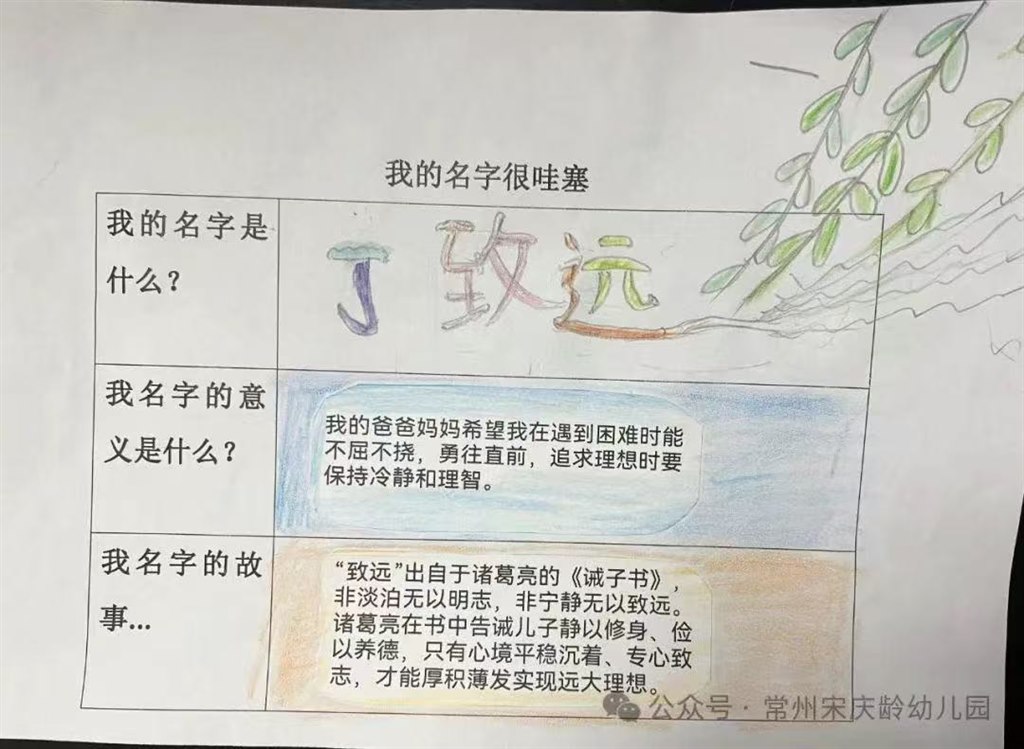 我的名字很哇塞
我的名字是
什么？
丁致远
我名字的意
义是什么？
我的爸爸妈妈希望我在遇到困难时能
不屈不挠，勇往直前，追求理想时要
保持冷静和理智。
我名字的故
事...
“致远”出自于诸葛亮的《诫子书》，
非淡泊无以明志，非宁静无以致远。
诸葛亮在书中告诫儿子静以修身、俭
以养德，只有心境平稳沉着、专心致
志，才能厚积薄发实现远大理想。
公众号·常州宋庆龄幼儿园